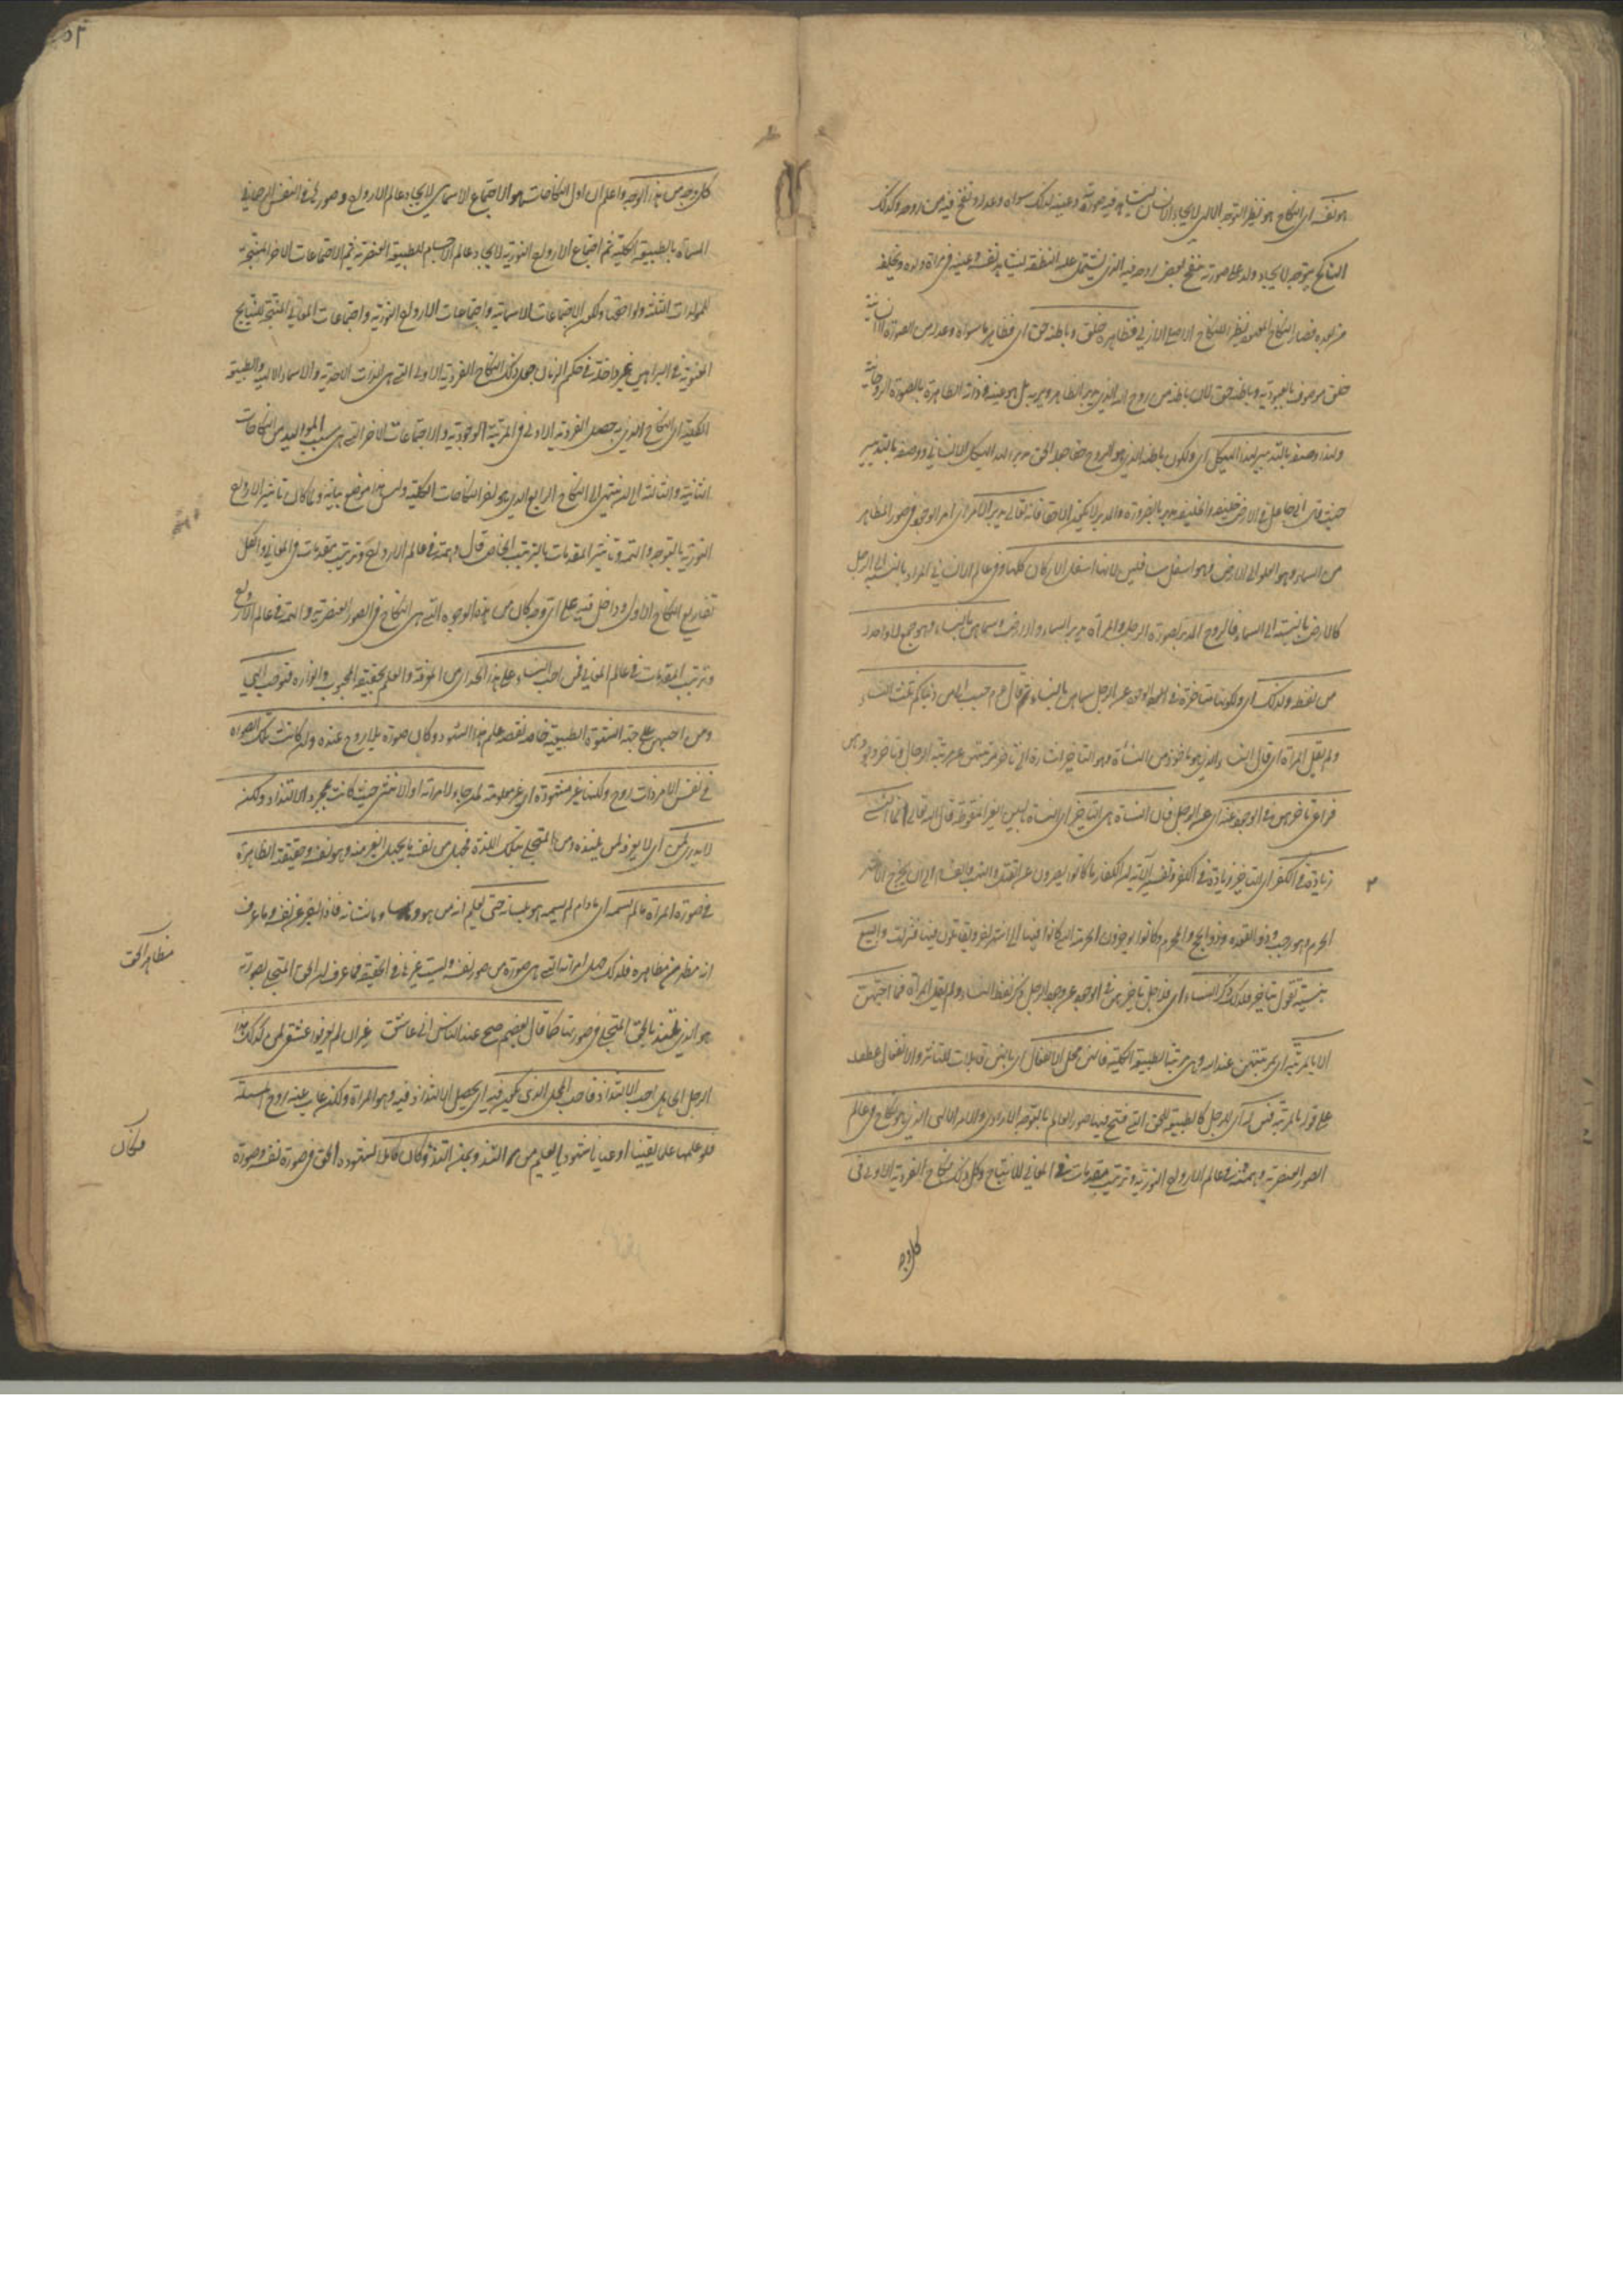 هو نفسه اى النكاح هو نظير التوجه الالهى لايجاد الانسان ليشاهد فيه صورته وعينه لذلك سواه وعدله ونفخ فيه من روحه وكذلك
الناكح يتوجه لايجاد ولد على صورته بنفخ بعض روحه فيه الذى يشتمل عليه النطفة ليشاهد نفسه وعينه فى مرآة ولده ويخلفه
من بعده فصار النكاح المعهود نظير للنكاح الاصلى الازلى فظاهره خلق وباطنه حق اى فظاهر ما سواه وعدله من الصورة الانسانية
خلق موصوف بالعبودية وباطنه حق لان باطنه من روح الله الذى يدبر الظاهر ويربه بل هو عينه وذاته الظاهرة بالصورة الروحانية
ولهذا وصفه بالتدبير لهذا الهيكل اى ولكون باطنه الذى هو الروح حقا جعل الحق مدبرا لهذا الهيكل الانسانى ووصفه بالتدبير
حيث قال انى جاعل فى الارض خليفة والخليفة مدبر بالضرورة والمدبر لا يكون الا حقا فانه تعالى يدبر الامر اى امر الوجود فى صور المظاهر
من السماء وهو العلو الى الارض وهو اسفل سافلين لانها اسفل الاركان كلها وفى عالم الانسانى المراة بالنسبة الى الرجل
كالارض بالنسبة الى السماء فالروح المدبر لصورة الرجل والمرأة مدبر السماء والارض وسماهن بالنساء وهو جمع لا واحد له
من لفظه ولذلك اى ولكونها متاخرة فى الوجود عن الرجل سماهن بالنساء قال عم حبب الى من دنياكم ثلث النساء
ولم يقل المرأة اى قال النساء الذى هو ماخوذ من النسأة وهو التاخير اشارة الى تاخر مرتبتهن عن مرتبة الرجال وتاخر وجودهن
فراعى تاخرهن فى الوجود عنه اى عن الرجل فان النسأة هى التاخير اى النسأة بالسين الغير المنقوطة قال الله تعالى انما النسئ
زيادة فى الكفر اى التاخير زيادة فى الكفر وتفسير الآية ان الكفار ما كانوا يصبرون عن القتل والنهب والفساد الى ان يخرج الاشهر
الحرم وهو رجب وذو القعدة وذو الحج والمحرم وكانوا يؤخرون الحرمة التى كانوا فيها الى اشهر اخر ويقاتلون فيها فنزلت والبيع
بنسية تقول بتاخير فلذلك ذكر النساء اى فلاجل تاخرهن فى الوجود عن وجود الرجل ذكر لفظ النساء ولم يقل المرأة فما احبهن
الا بالمرتبة اى بمرتبتهن عند الله وهى مرتبة الطبيعة الكلية فانهن محل الانفعال اى بانهن قابلات للتاثير والانفعال عطف
على قوله بالمرتبة فهن له اى للرجل كالطبيعة للحق التى فتح فيها صور العالم بالتوجه الارادى والامر الالهى الذى هو نكاح فى عالم
الصور العنصرية وهمة فى عالم الارواح النورية وترتيب مقدمات فى المعانى للانتاج وكل ذلك نكاح الفردية الاولى فى
كل وجه
كل وجه من هذه الوجوه واعلم ان اول النكاحات هو الاجتماع الاسمائى لايجاد عالم الارواح وصورها فى النفس الرحمانى
المسماة بالطبيعة الكلية ثم اجتماع الارواح النورية لايجاد عالم الاجسام الطبيعية العنصرية ثم الاجتماعات الاخر المنتجة
للمولدات الثلثة ولواحقها ولكون الاجتماعات الاسمائية واجتماعات الارواح النورية واجتماعات المعانى المنتجة للنتايج
المعنوية فى البراهين غير داخلة فى حكم الزمان جعل ذلك النكاح الفردية الاولى التى هى الذات الاحدية والاسماء الالهية والطبيعة
الكلية اى النكاح الذى به حصل الفردية الاولى فى المرتبة الوجودية والاجتماعات الاخر التى هى سبب المواليد من النكاحات
الثانية والثالثة الى ان ينتهى الى النكاح الرابع الذى هو آخر النكاحات الكلية وليس هذا موضع بيانه ولما كان تاثير الارواح
النورية بالتوجه والهمة وتاثير المقدمات بالترتيب الخاص قال وهمة فى عالم الارواح وترتيب مقدمات فى المعانى والكل
تفاريع النكاح الاول وداخل فيه على اى وجه كان من هذه الوجوه التى هى النكاح فى الصور العنصرية والهمة فى عالم الارواح
وترتيب المقدمات فى عالم المعانى فمن احب النساء على هذا الحد اى من المعرفة والعلم بحقيقة المحبوب وانواره فهو حب الهى
ومن احبهن على جهة الشهوة الطبيعية خاصة نقصه علم هذه الشهوة وكان صورة بلا روح عنده وان كانت تلك الصورة
فى نفس الامر ذات روح ولكنها غير مشهودة اى غير معلومة لمن جاء لامراته او لانثى حيث كانت لمجرد الالتذاذ ولكن
لا يدرى لمن اى لا يعرف لمن يلتذ ومن المتجلى بتلك اللذة فجهل من نفسه ما يجهل الغير منه وهو نفسه وحقيقته الظاهرة
فى صورة المرأة ما لم يسمه اى ما دام لم يسمه هو بلسانه حتى يعلم انه من هو وما شانه فاذا لم يعرف نفسه وما عرف
انه مظهر من مظاهره فلذلك جهل امرأته التى هى صورة من صور نفسه وليست غيرها فى الحقيقة فما عرف ان الحق المتجلى بصورته
هو الذى يلتذ بالحق المتجلى فى صورتها كما قال بعضهم صح عند الناس انى عاشق غير ان لم يعرفوا عشقى لمن كذلك هذا
الرجل الجاهل احب الالتذاذ فاحب المحل الذى يكون فيه اى يحصل الالتذاذ فيه وهو المرأة ولكن غاب عنه روح المسئلة
فلو علمها علما يقينيا او عيانا شهوديا لعلم من التذ وبمن التذ وكان كاملا لشهوده الحق فى صورة نفسه وصورة
مظاهر الحق
فكان